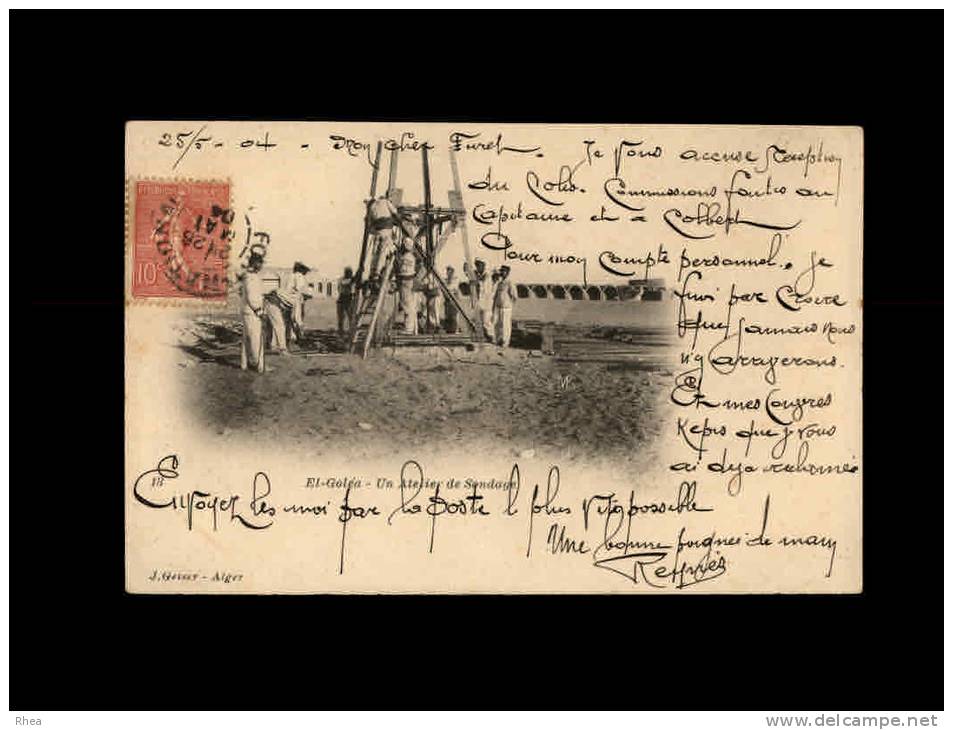 25/5 - 04 - Mon cher Furet. Je vous accuse Réception
du Colis. Commissions faites au
Capitaine et à Colbert
Pour mon compte personnel. je
fini par croire
que jamais nous
n'y arriverons.
Et mes
Kepis que je vous
ai deja
REPUBLIQUE FRANÇAISE
10
28
MAI
04
18 El-Goléa - Un Atelier de Sondage
Envoyez les moi par la poste l plus vite possible
Une bonne poignée de main
J. Geiser - Alger
Rhea
www.delcampe.net